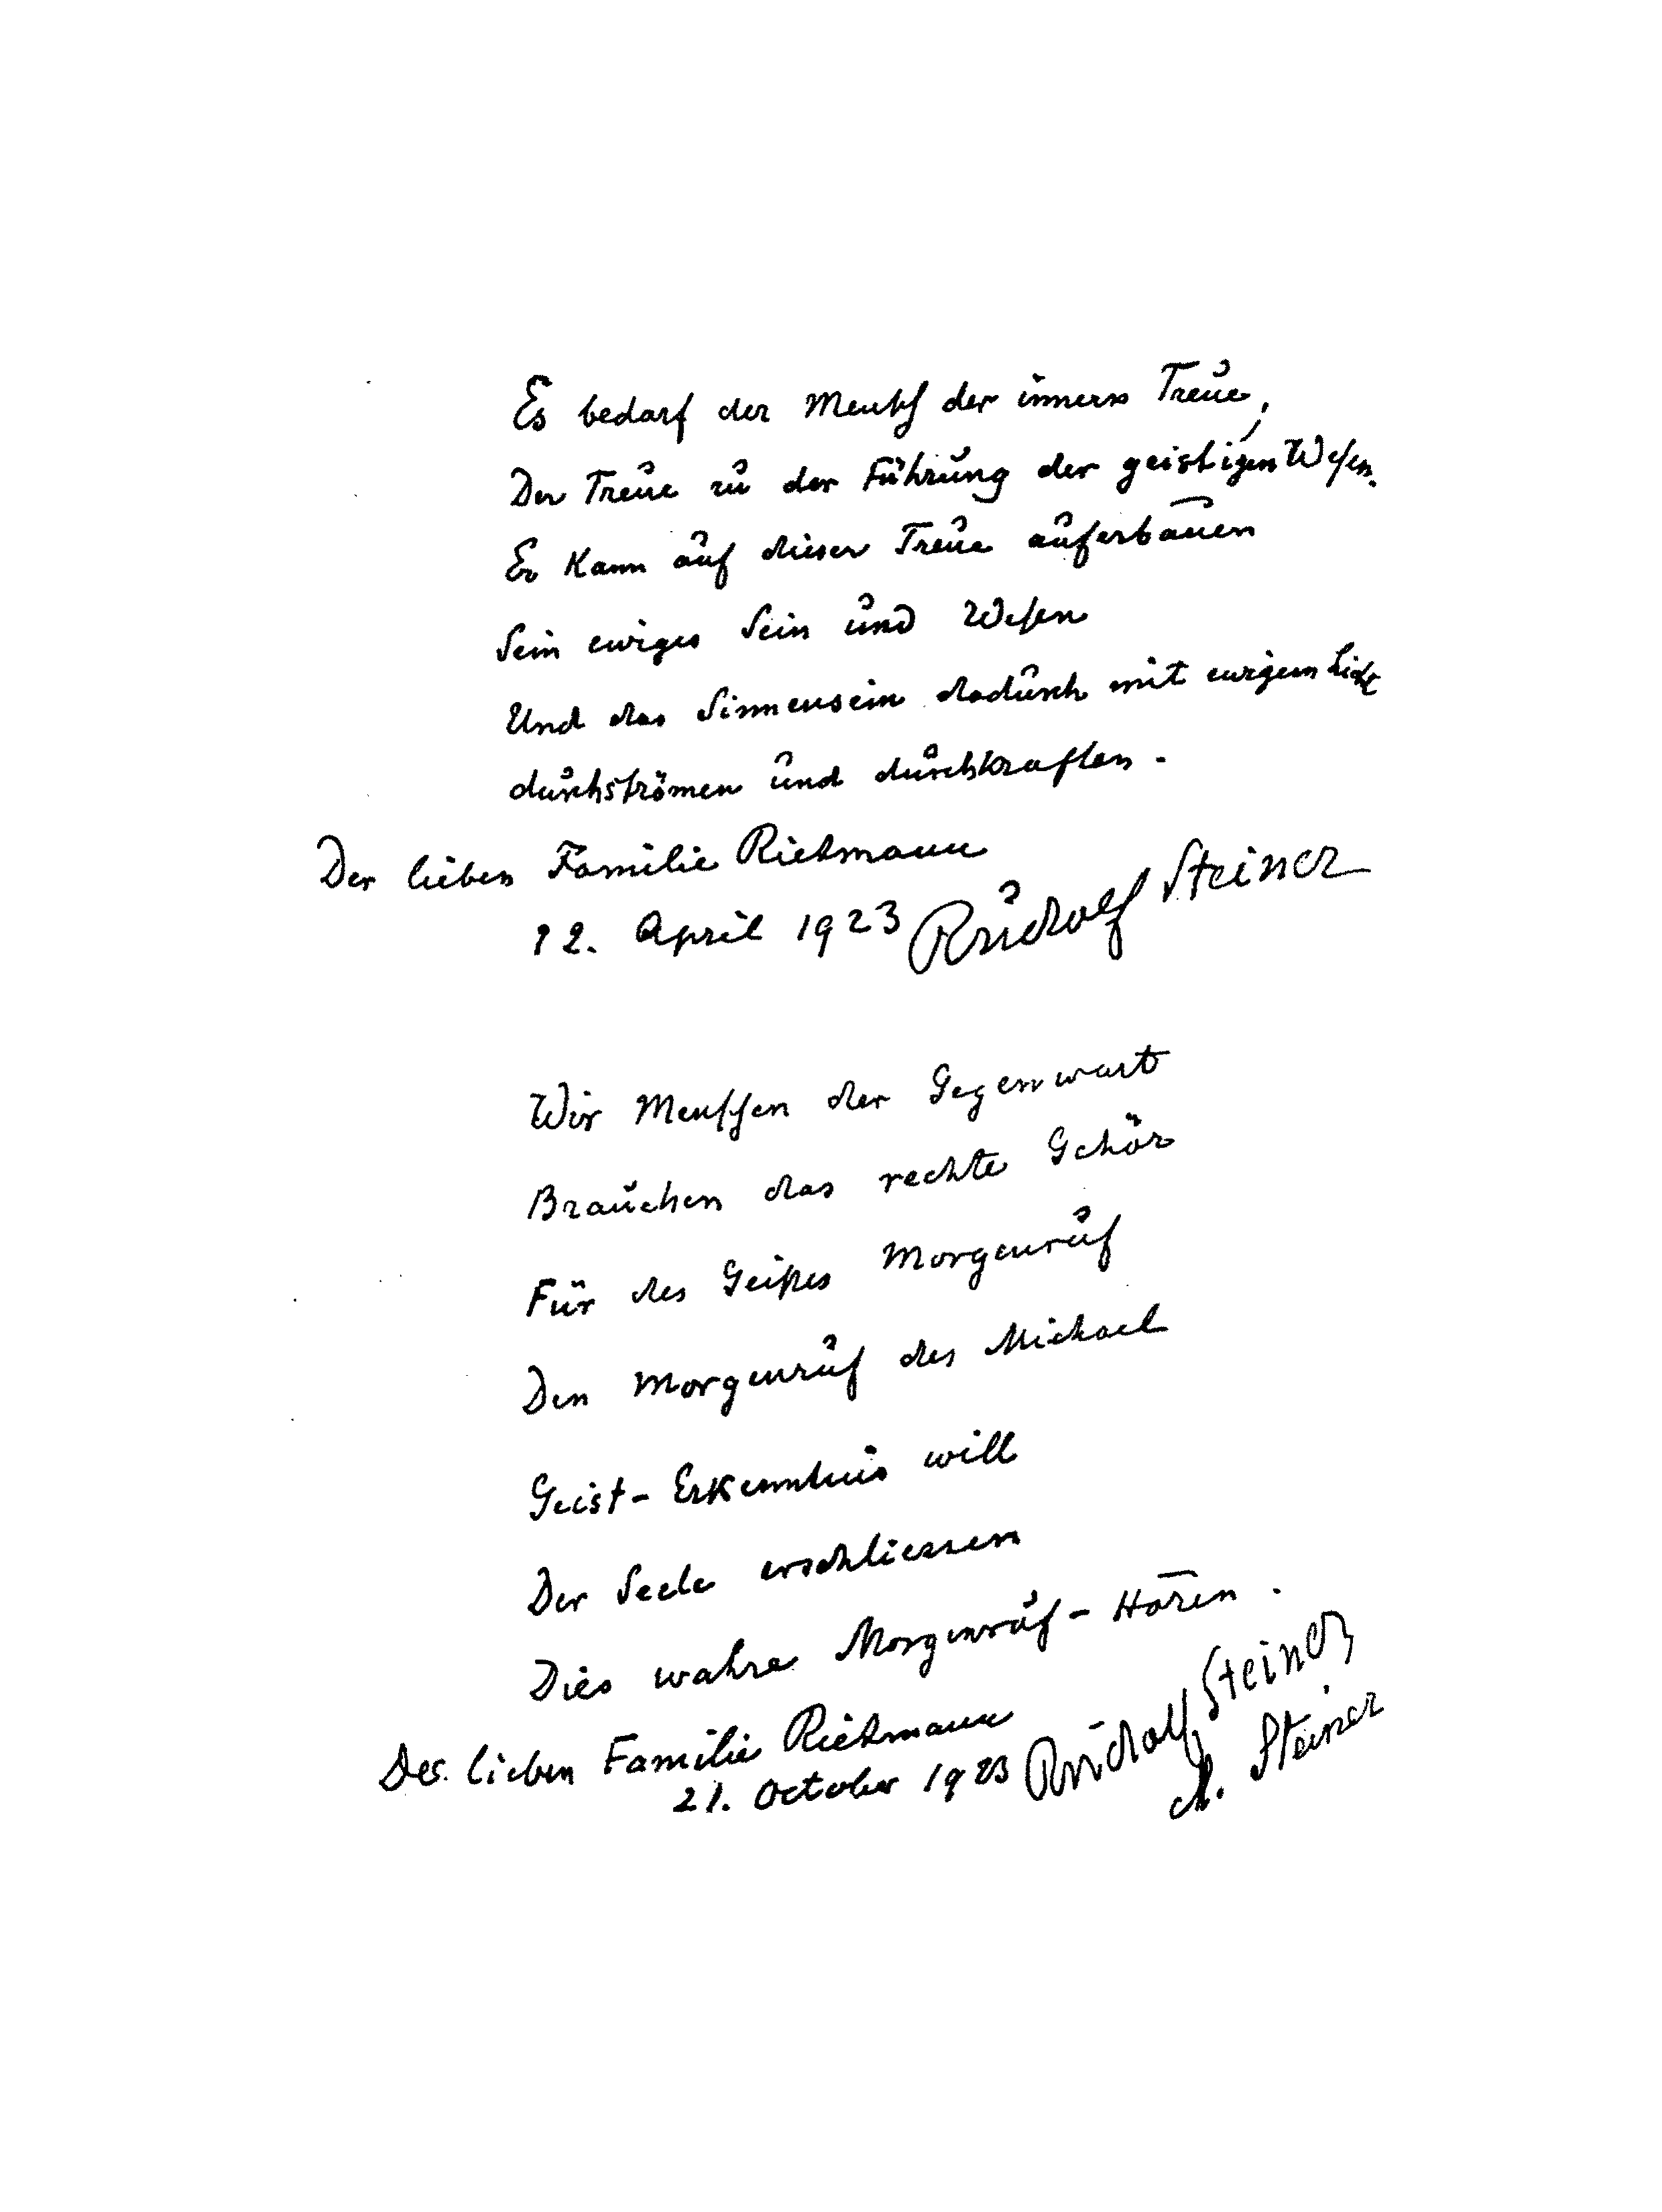 Es bedarf der Mensch der innern Treue,
Der Treue zu der Führung der geistigen Wesen.
Er kann auf dieser Treue auferbauen
Sein ewiges Sein und Wesen
Und das Sinnensein dadurch mit ewigem Licht
durchströmen und durchkraften.
Der lieben Familie Rietmann
12. April 1923 Rudolf Steiner
Wir Menschen der Gegenwart
Brauchen das rechte Gehör
Für des Geistes Morgenruf
Den Morgenruf des Michael
Geist-Erkenntnis will
Der Seele erschliessen
Dies wahre Morgenruf-Hören.
Der lieben Familie Rietmann
21. October 1923 Rudolf Steiner
M. Steiner